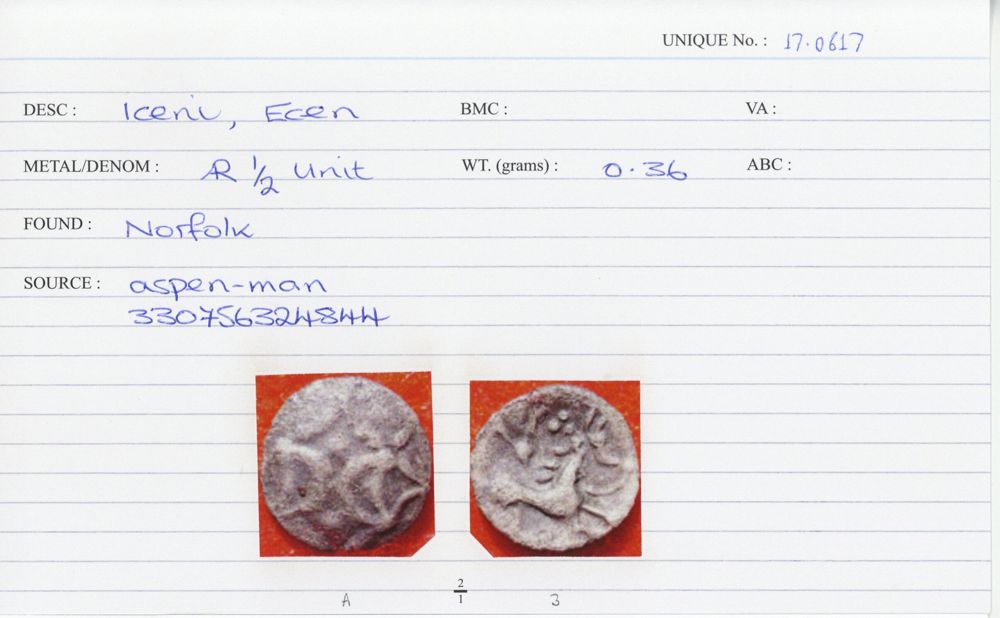 UNIQUE No. : 17.0617
DESC : Iceni, Ecen BMC : VA :
METAL/DENOM : AR 1/2 Unit WT. (grams) : 0.36 ABC :
FOUND : Norfolk
SOURCE : aspen-man
330756324844
2/1
A 3